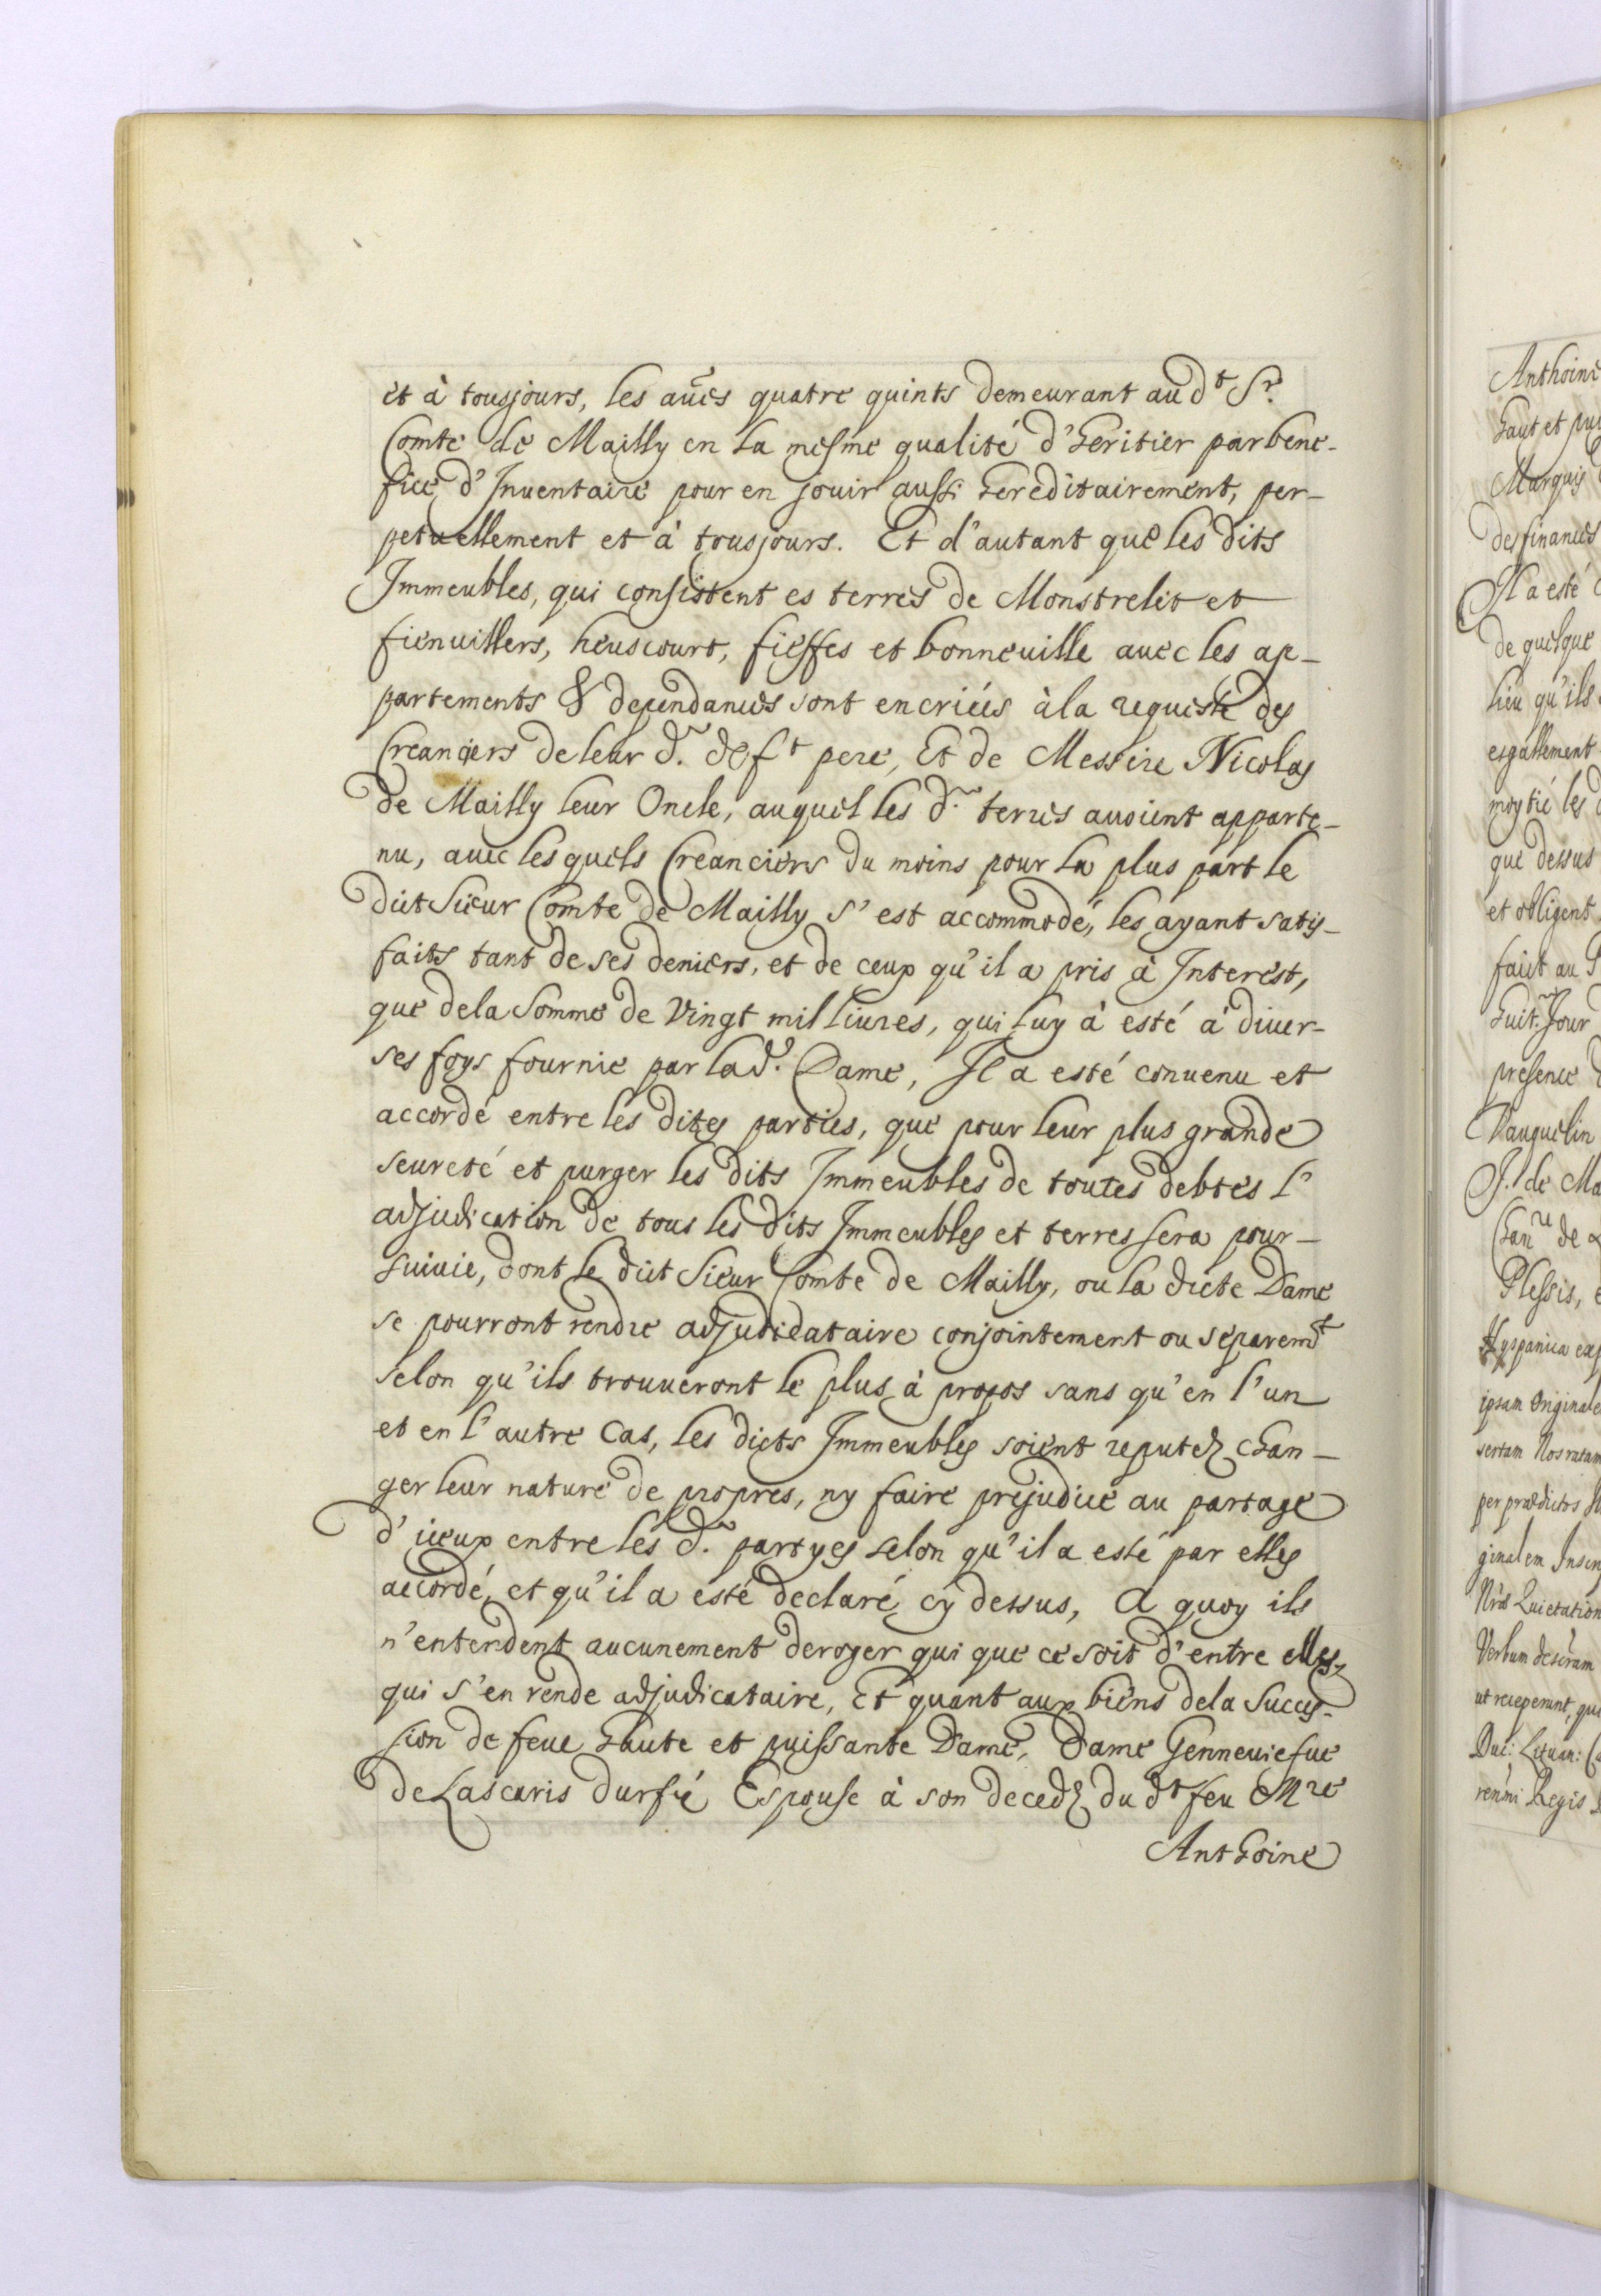 et à tousjours, les au̅es quatre quints demeurant au dᵗ Sʳ.
Comte de Mailly en la mesme qualité d'Heritier par bene-
fice d'Inuentaire pour en jouir aussi hereditairement, per-
petuellement et à tousjours. Et d'autant que les dits
Immeubles, qui consistent es terres de Monstrelet et
fienuillers, heuscourt, fieffes et bonneuille auec les ap-
partements & dependances sont encriées à la requeste des
Creanciers de leur d. defᵗ pere, Et de Messire Nicolas
de Mailly leur Oncle, auquel les d. terres auoient apparte-
nu, auec lesquels Creanciers du moins pour la plus part le
dict Sieur Comte de Mailly s'est accommodé, les ayant satis-
faits tant de ses deniers, et de ceux qu'il a pris à Interest,
que de la Somme de Vingt mil Liures, qui luy à esté à diuer-
ses foys fournie par lad. Dame, Il a esté conuenu et
accordé entre les dites parties, que pour leur plus grande
seureté et purger les dits Immeubles de toutes debtes l'
adjudication de tous les dits Immeubles et terres sera pour-
suiuie, dont le dict Sieur Comte de Mailly, ou la dicte Dame
se pourront rendre adjudicataire conjointement ou separemᵗ
selon qu'ils trouueront le plus à propos sans qu'en l'un
et en l'autre Cas, les dicts Immeubles soient reputez chan-
ger leur nature de propres, ny faire prejudice au partage
d'iceux entre les d. partyes selon qu'il a esté par elles
accordé, et qu'il a esté declaré cy dessus, A quoy ils
n'entendent aucunement deroger qui que ce soit d'entre elles,
qui s'en rende adjudicataire, Et quant aux biens de la Succes-
sion de feue Haute et puissante Dame, Dame Genneuiefue
de Lascaris durfé Espouse à son decedz du dᵗ feu Mʳᵉ
Anthoine
Anthoine
haut et
Marquis
des finances
Il a esté
de quelque
lieu qu'ils
esgallement
moytié les
que dessus
et obligent
faict au
huit. Jour
presence
Vauquelin
J. de Ma
Chanʳᵉ de
Plessis,
Hyspanica
ipsam Originale
sertam Nos ratam
per prædictos
ginalem Inser
Nr̃ã Quietation
Verbum
ut receperunt,
Duc: Lituan:
Regis